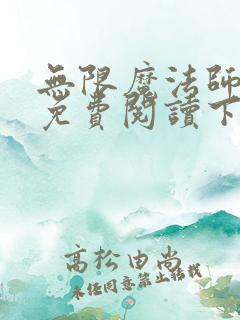 無限魔法師
免費閱讀下
高松由尚
未经同意禁止转载